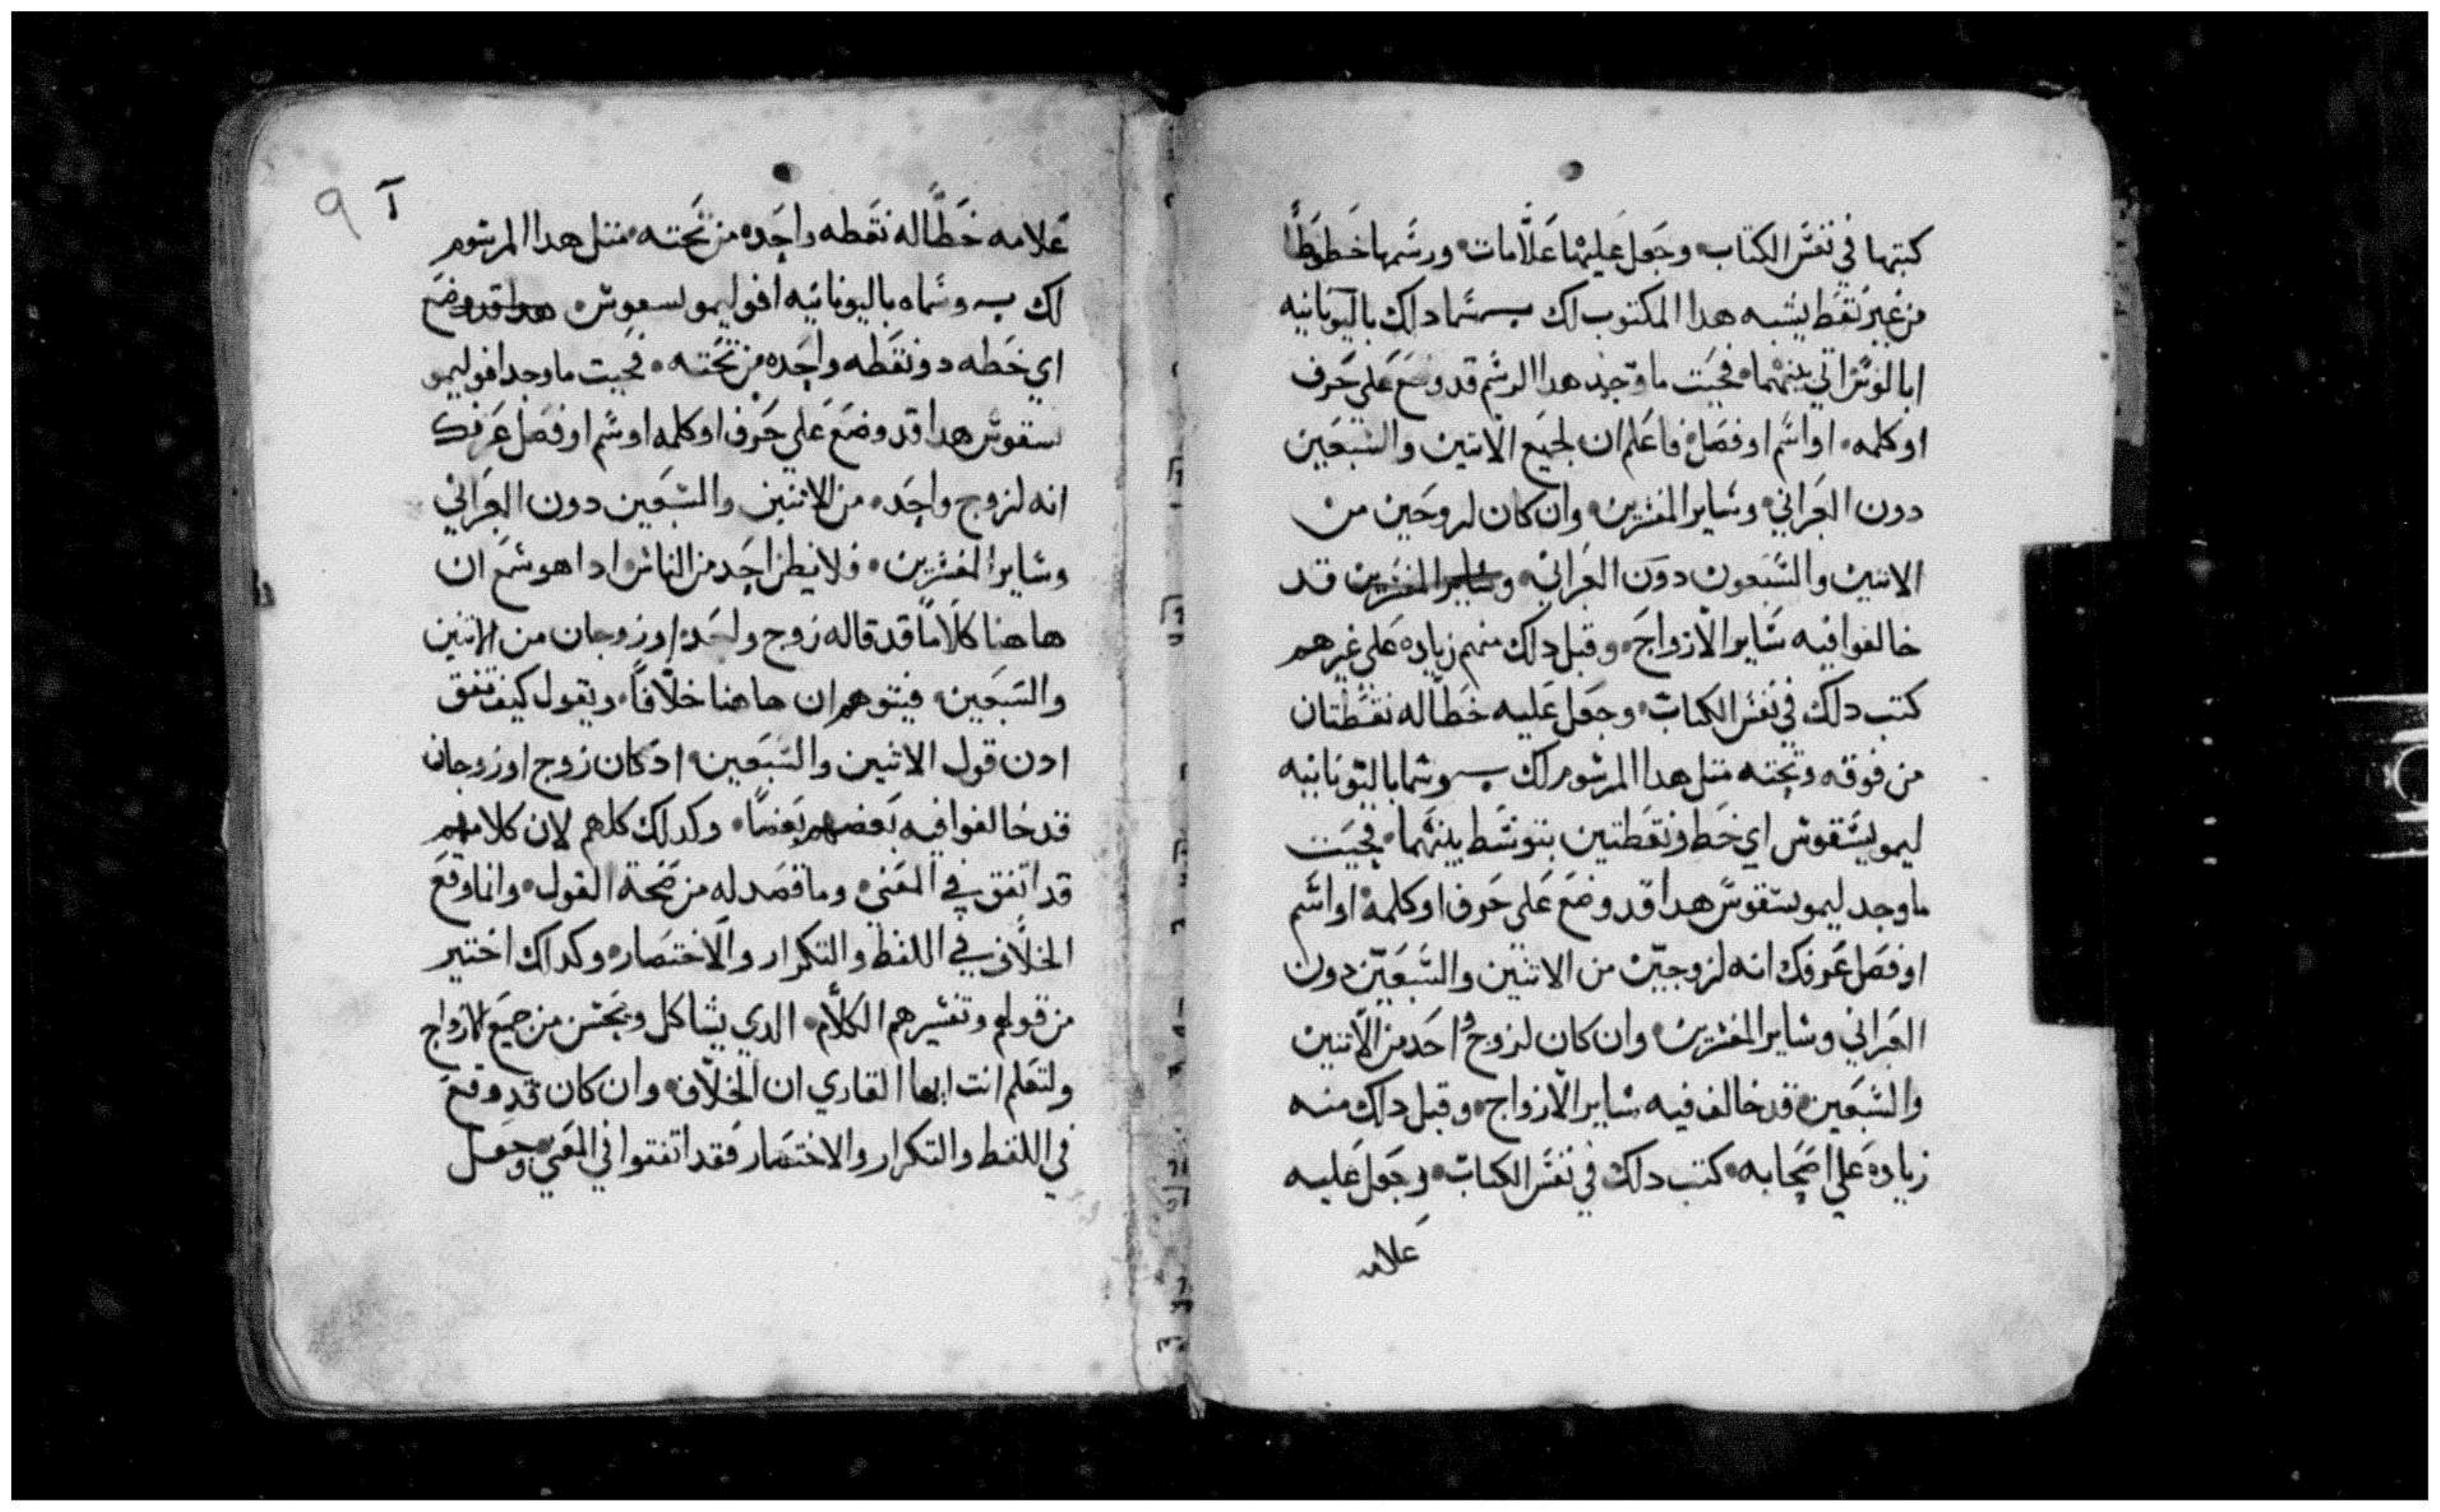 كتبتها في نفس الكتاب وجعل عليها علامات ورسمها خطوطا
من غير نقط يشبه هدا المكتوب لك ــ سما دلك باليونانيه
ابالوس اتي بينهما فحيت ما توجد هدا الرسم قد وضع على حرف
او كلمه او اسم او فصل فاعلم ان لجميع الاتنين والسبعين
دون العبراني وساير المفسرين وان كان لزوجين من
الاتنين والسبعون دون العبراني وساير المفسرين قد
خالفوا فيه ساير الازواج وقبل دلك منهم زياده على غيرهم
كتب دلك في نفس الكتاب وجعل عليه خطا له نقطتان
من فوقه وتحته متل هدا المرسوم لك ــ وسما باليونانيه
ليمونيسقوس اي خط ونقطتين يتوسط بينهما فحيت
ما وجد ليمونسقوس هدا قد وضع على حرف او كلمه او اسم
او فصل عرفك انه لزوجين من الاتنين والسبعين دون
العبراني وساير المفسرين وان كان لزوج واحد من الاتنين
والسبعين قد خالف فيه ساير الازواج وقبل داك منه
زياده على اصحابه كتب دلك في نفس الكتاب وجعل عليه
علامه
٩ آ
علامه خطا له نقطه واحده من تحته متل هدا المرسوم
لك ــ وسماه باليونانيه افوليمونسقوس هدا قد وضع
اي خطه دو نقطه واحده من تحته فحيت ما وجد افوليمو
نسقوس هدا قد وضع على حرف او كلمه او سم او فصل عرفك
انه لزوج واحده من الاتنين والسبعين دون العبراني
وساير المفسرين فلا يظن احد من الناس ادا هو سمع ان
هاهنا كلاما قد قاله زوج واحده او زوجان من الاتنين
والسبعين فيتوهم ان هاهنا خلافا ويقول كيف تفق
ادن قول الاتنين والسبعين اد كان زوج او زوجان
قد خالفوا فيه بعضهم بعضا وكدلك كلهم لان كلامهم
قد اتفق في المعني وما قصد له من صحة القول وانما وقع
الخلاف في اللفظ والتكرار والاختصار وكداك اختير
من قولهم وتفسيرهم الكلام الدي يشاكل ويحسن من جميع الازواج
ولتعلم انت ايها القاري ان الخلاف وان كان قد وقع
في اللفظ والتكرار والاختصار فقد اتفقوا في المعني وجعل